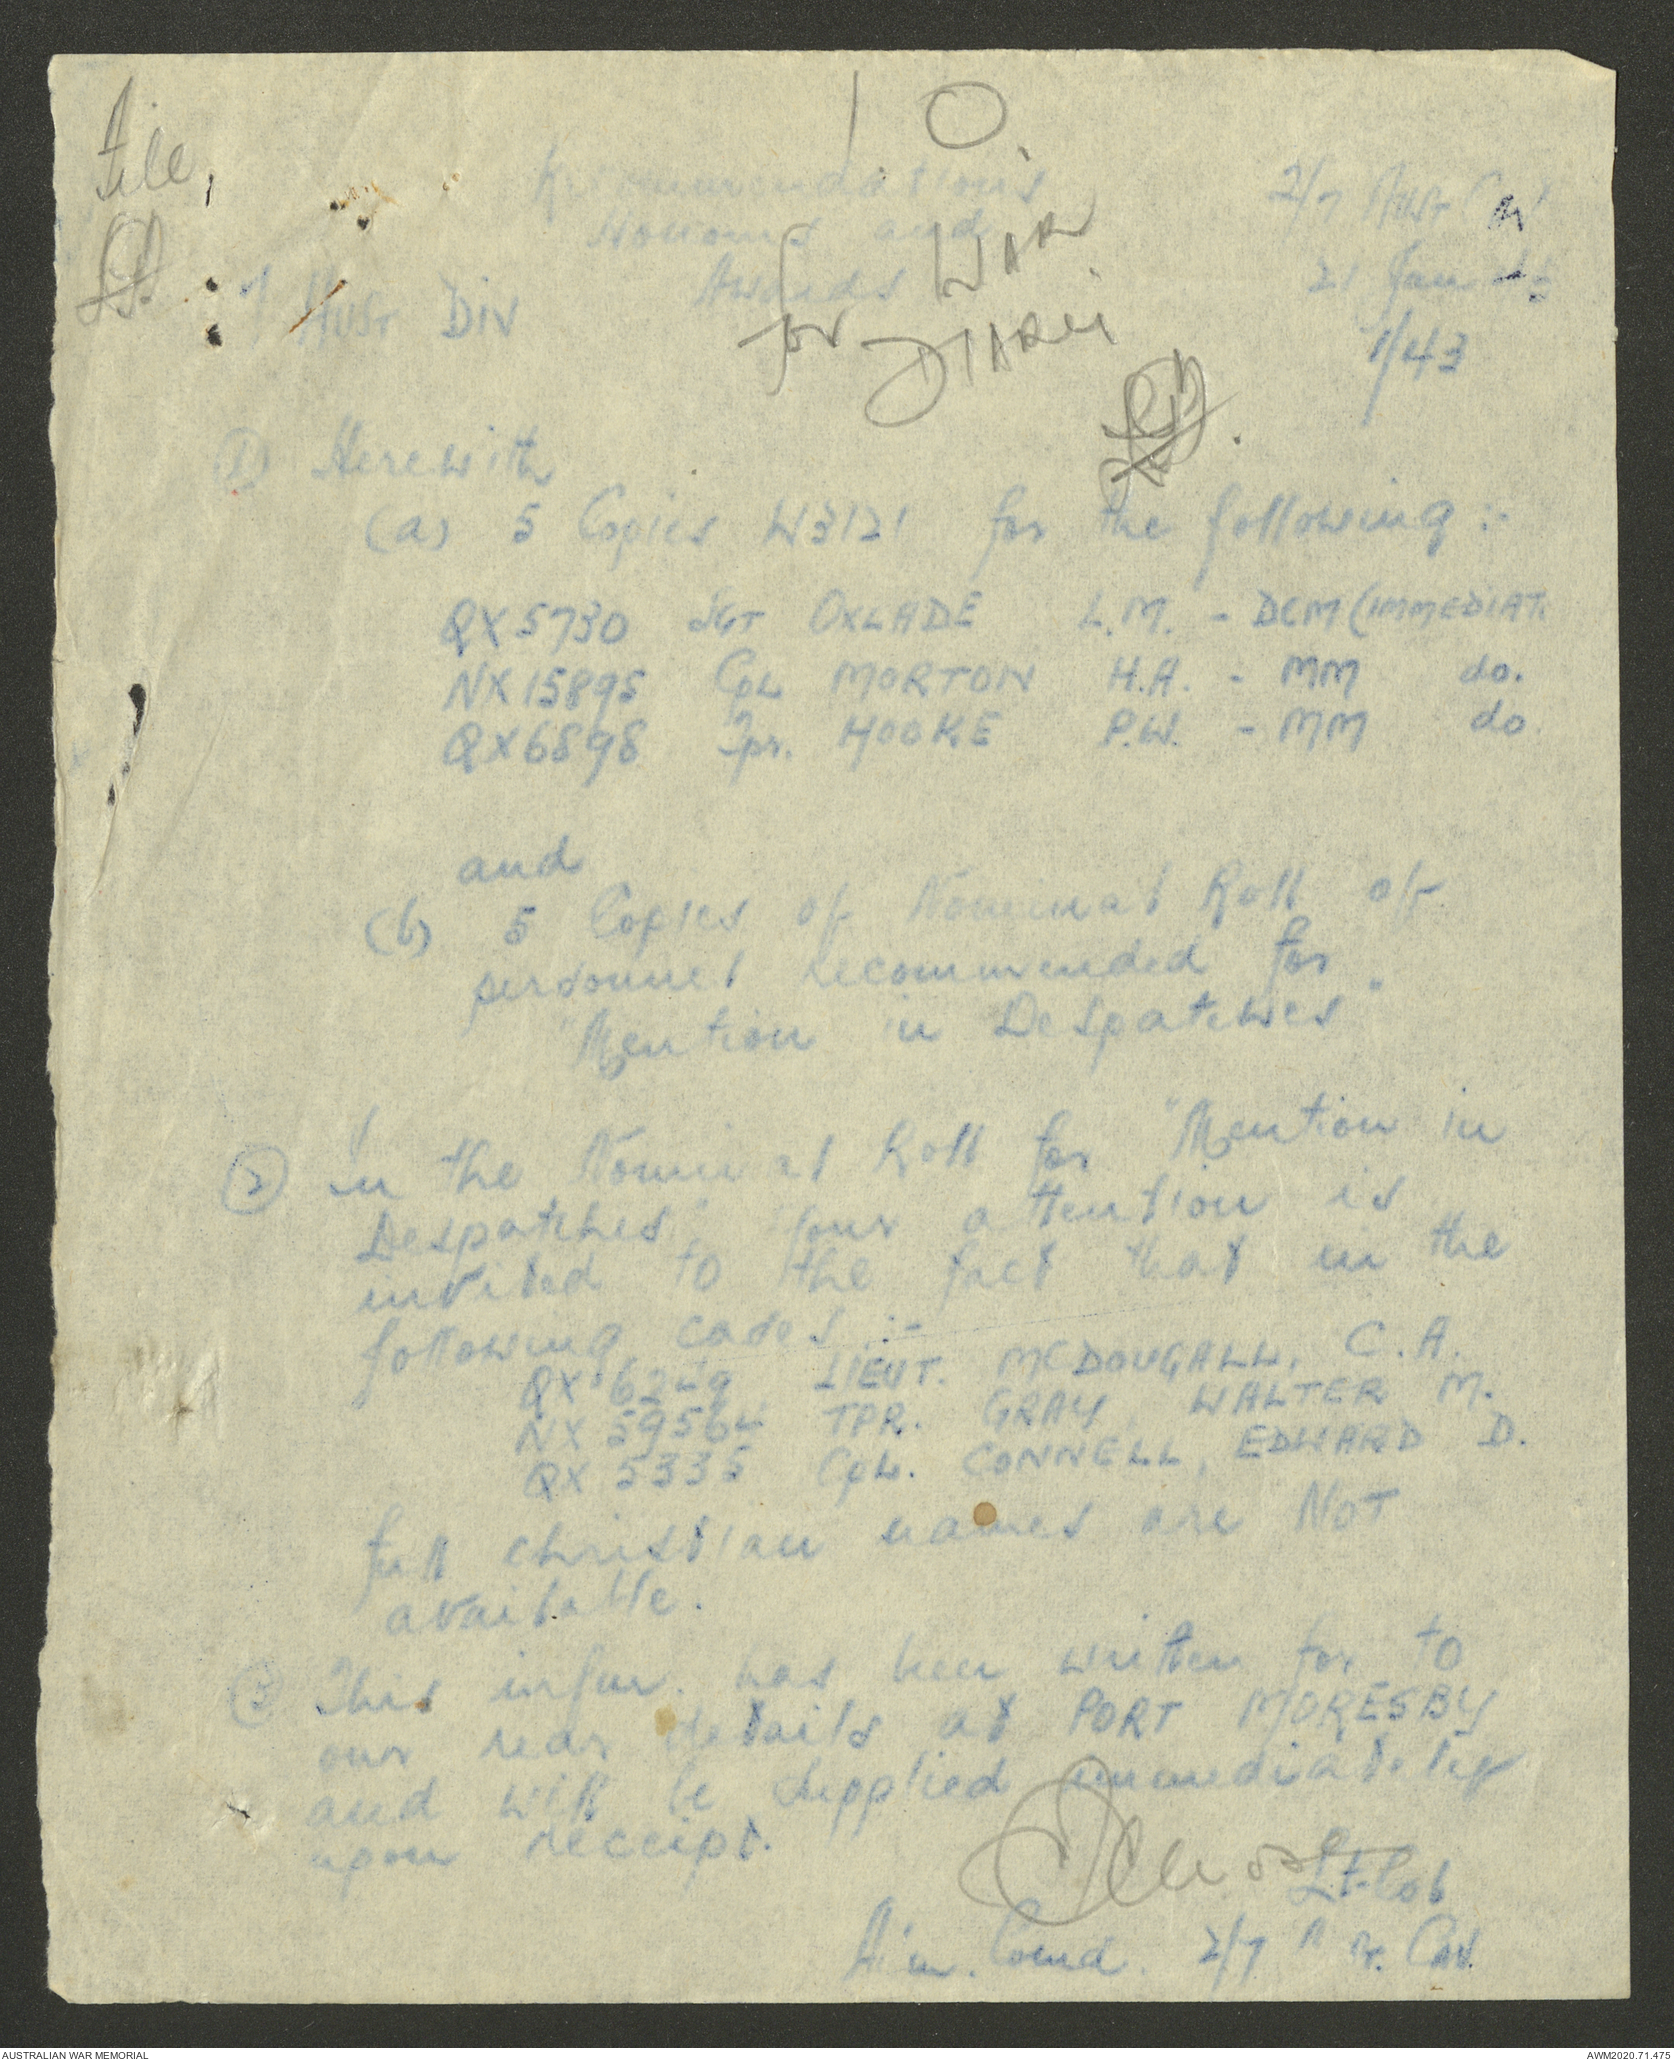 10.
File,
Recommendations
Honours and
Awards
2/7 Aust Cav
7 Aust Div
21 Jan 43
1/43
for WAR
DIARY
(1) Herewith
(a) 5 Copies W3121 for the following :-
QX5730 Sgt OXLADE L.M. - DCM (IMMEDIAT.
NX15895 Cpl MORTON H.A. - MM do.
QX6898 Tpr. HOOKE P.W. - MM do
and
(b) 5 Copies of Nominal Roll of
personnel recommended for
"Mention in Despatches"
(2) In the Nominal Roll for "Mention in
Despatches" your attention is
invited to the fact that in the
following cases :-
QX 6249 LIEUT. McDOUGALL, C.A.
NX 59564 TPR. GRAY, WALTER M.
QX 5335 CPL. CONNELL, EDWARD D.
full christian names are NOT
available.
(3) This infm. has been written for to
our rear details at PORT MORESBY
and will be supplied immediately
upon receipt.
Lt-Col
Comd. 2/7 Cav.
AUSTRALIAN WAR MEMORIAL
AWM2020.71.475